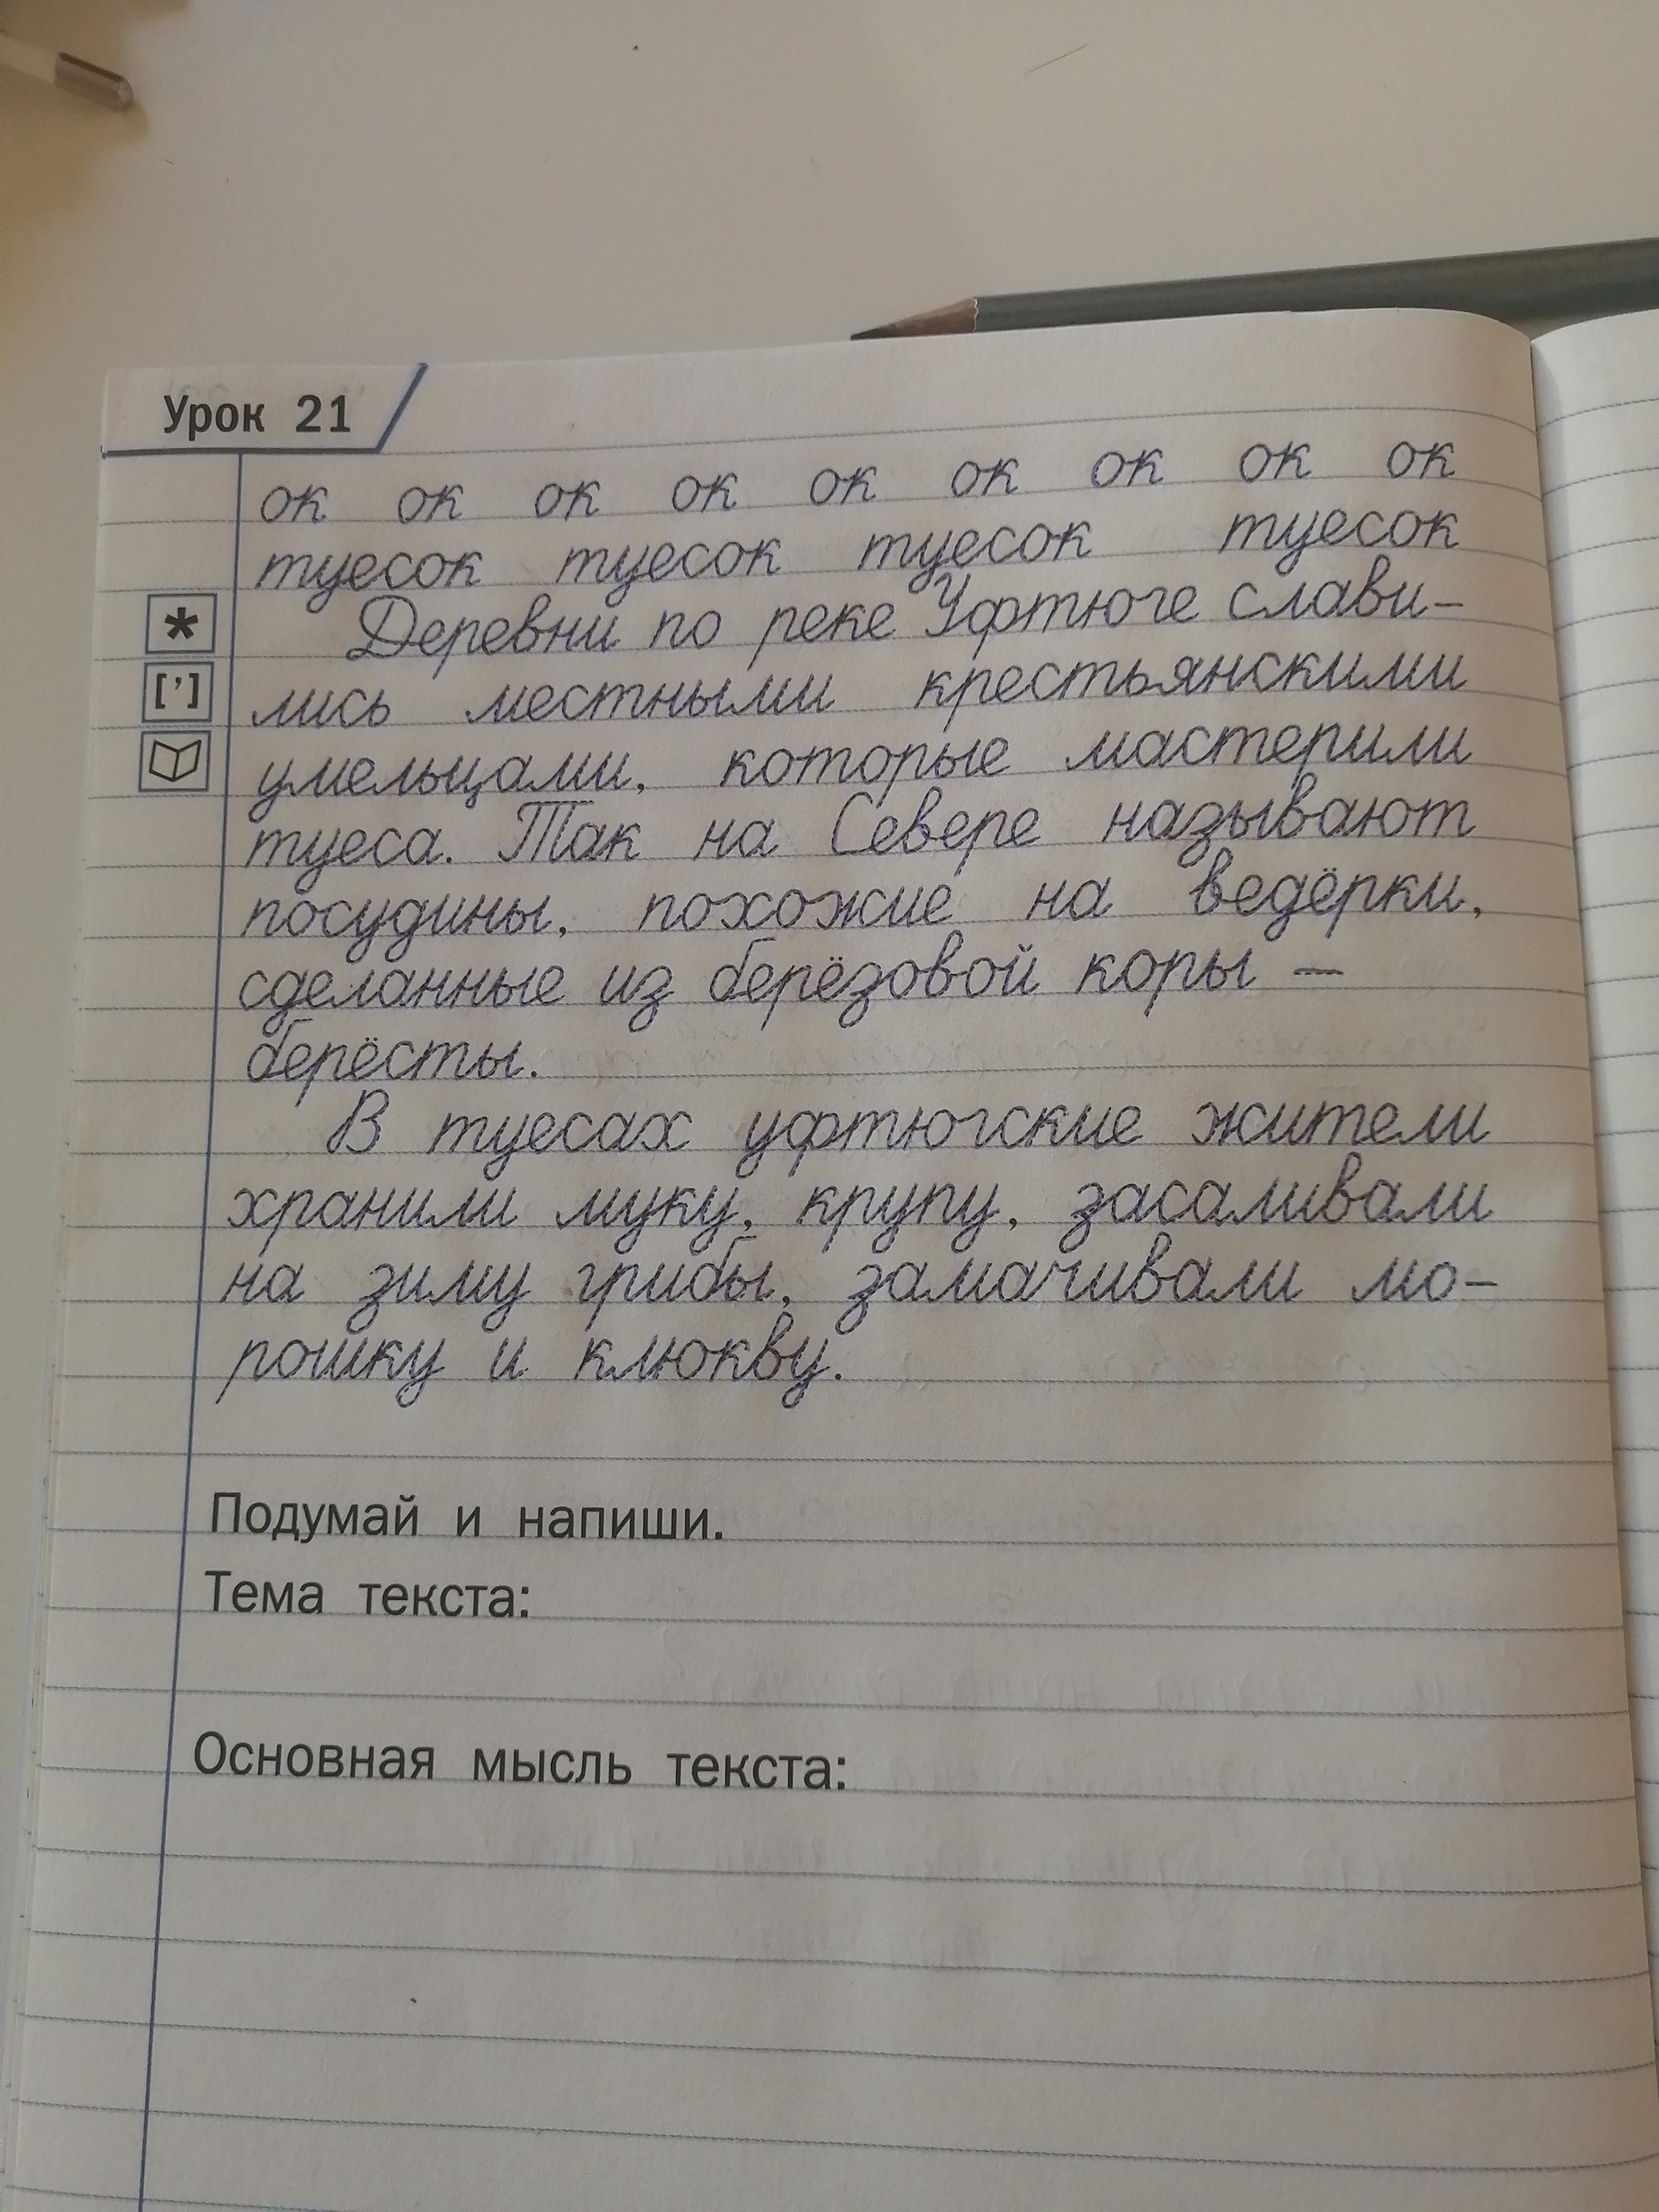 Урок 21
ок ок ок ок ок ок ок ок ок
туесок туесок туесок туесок
Деревни по реке Уфтюге слави-
лись местными крестьянскими
умельцами, которые мастерили
туеса. Так на Севере называют
посудины, похожие на ведёрки,
сделанные из берёзовой коры —
берёсты.
В туесах уфтюгские жители
хранили муку, крупу, засаливали
на зиму грибы, замачивали мо-
рошку и клюкву.
Подумай и напиши.
Тема текста:
Основная мысль текста: